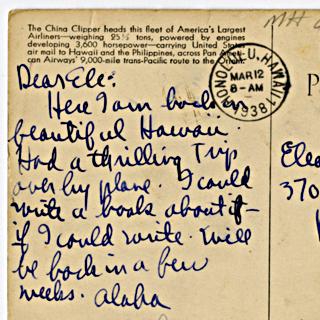 The China Clipper heads this fleet of America's Largest
Airliners—weighing 25½ tons, powered by engines
developing 3,600 horsepower—carrying United States
air mail to Hawaii and the Philippines, across Pan Ameri-
can Airways' 9,000-mile trans-Pacific route to the Orient.
HONOLULU, HAWAII
MAR 12
8-AM
1938
Dear Ele:
Here I am back
beautiful Hawaii.
Had a thrilling Trip
over by plane. I could
write a book about it -
if I could write. Will
be back in a few
weeks. aloha
P
Elea
370